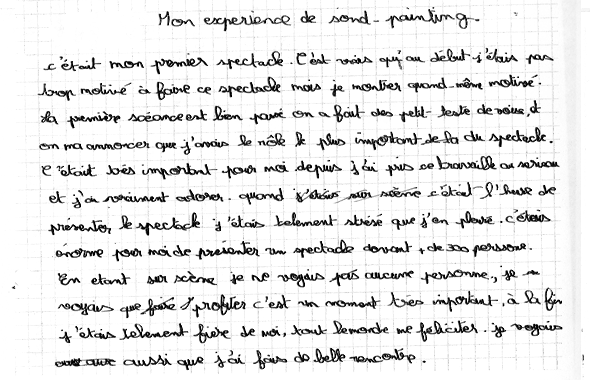 Mon experience de sond-painting.
c'était mon premier spectacle. C'est vrais qu'au début j'étais pas
trop motivé à faire ce spectacle mais je montrer quand-même motivé.
La première scéance est bien passé on a fait des petit teste de voix, et
on ma annoncer que j'avais le rôle le plus important de la du spectacle.
C'était très important pour moi depuis j'ai pris ce travaille au serieux
et j'ai vraiment adorer. quand j'étais sur scène c'était l'heure de
présenter le spectacle j'étais telement stresé que j'en pleuré. c'étais
énorme pour moi de presenter un spectacle devant + de 300 persone.
En etant sur scène je ne voyais pas aucune personne, je
voyais que faire profiter c'est un moment très important, à la fin
j'étais telement fière de moi, tout lemonde me féliciter. je voyais
aussi que j'ai fais de belle rencontre.